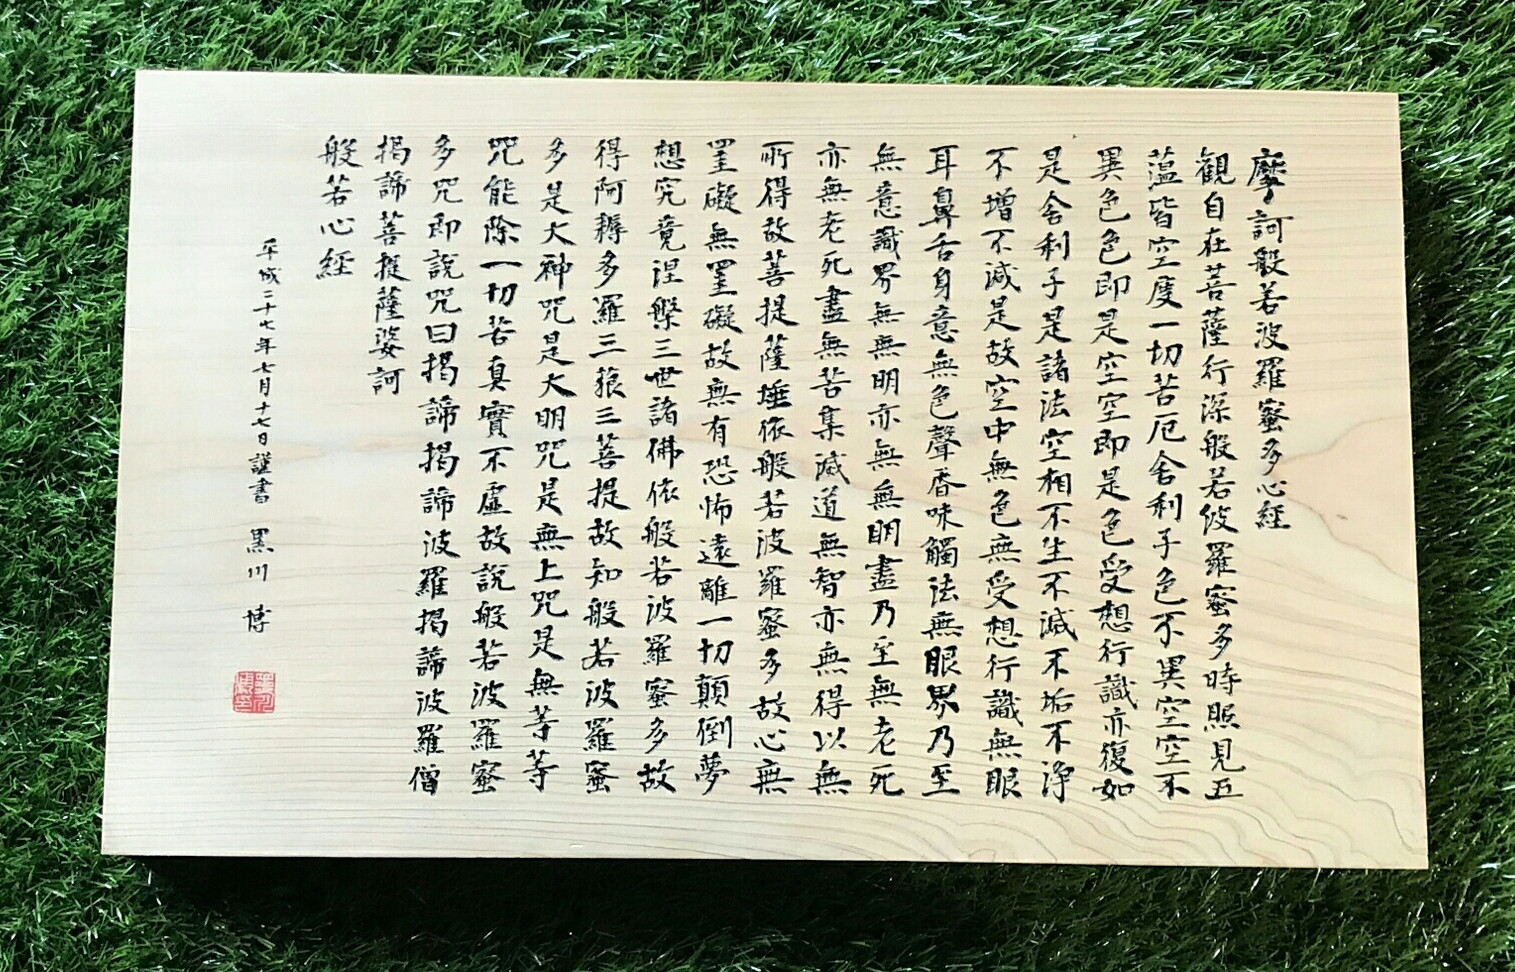 摩訶般若波羅蜜多心経
観自在菩薩行深般若波羅蜜多時照見五
蘊皆空度一切苦厄舎利子色不異空空不
異色色即是空空即是色受想行識亦復如
是舎利子是諸法空相不生不滅不垢不浄
不増不減是故空中無色無受想行識無眼
耳鼻舌身意無色聲香味觸法無眼界乃至
無意識界無無明亦無無明盡乃至無老死
亦無老死盡無苦集滅道無智亦無得以無
所得故菩提薩埵依般若波羅蜜多故心無
罣礙無罣礙故無有恐怖遠離一切顛倒夢
想究竟涅槃三世諸佛依般若波羅蜜多故
得阿耨多羅三藐三菩提故知般若波羅蜜
多是大神咒是大明咒是無上咒是無等等
咒能除一切苦真實不虚故説般若波羅蜜
多咒即説咒曰揭諦揭諦波羅揭諦波羅僧
揭諦菩提薩婆訶
般若心経
平成二十七年七月十七日謹書 黒川 博